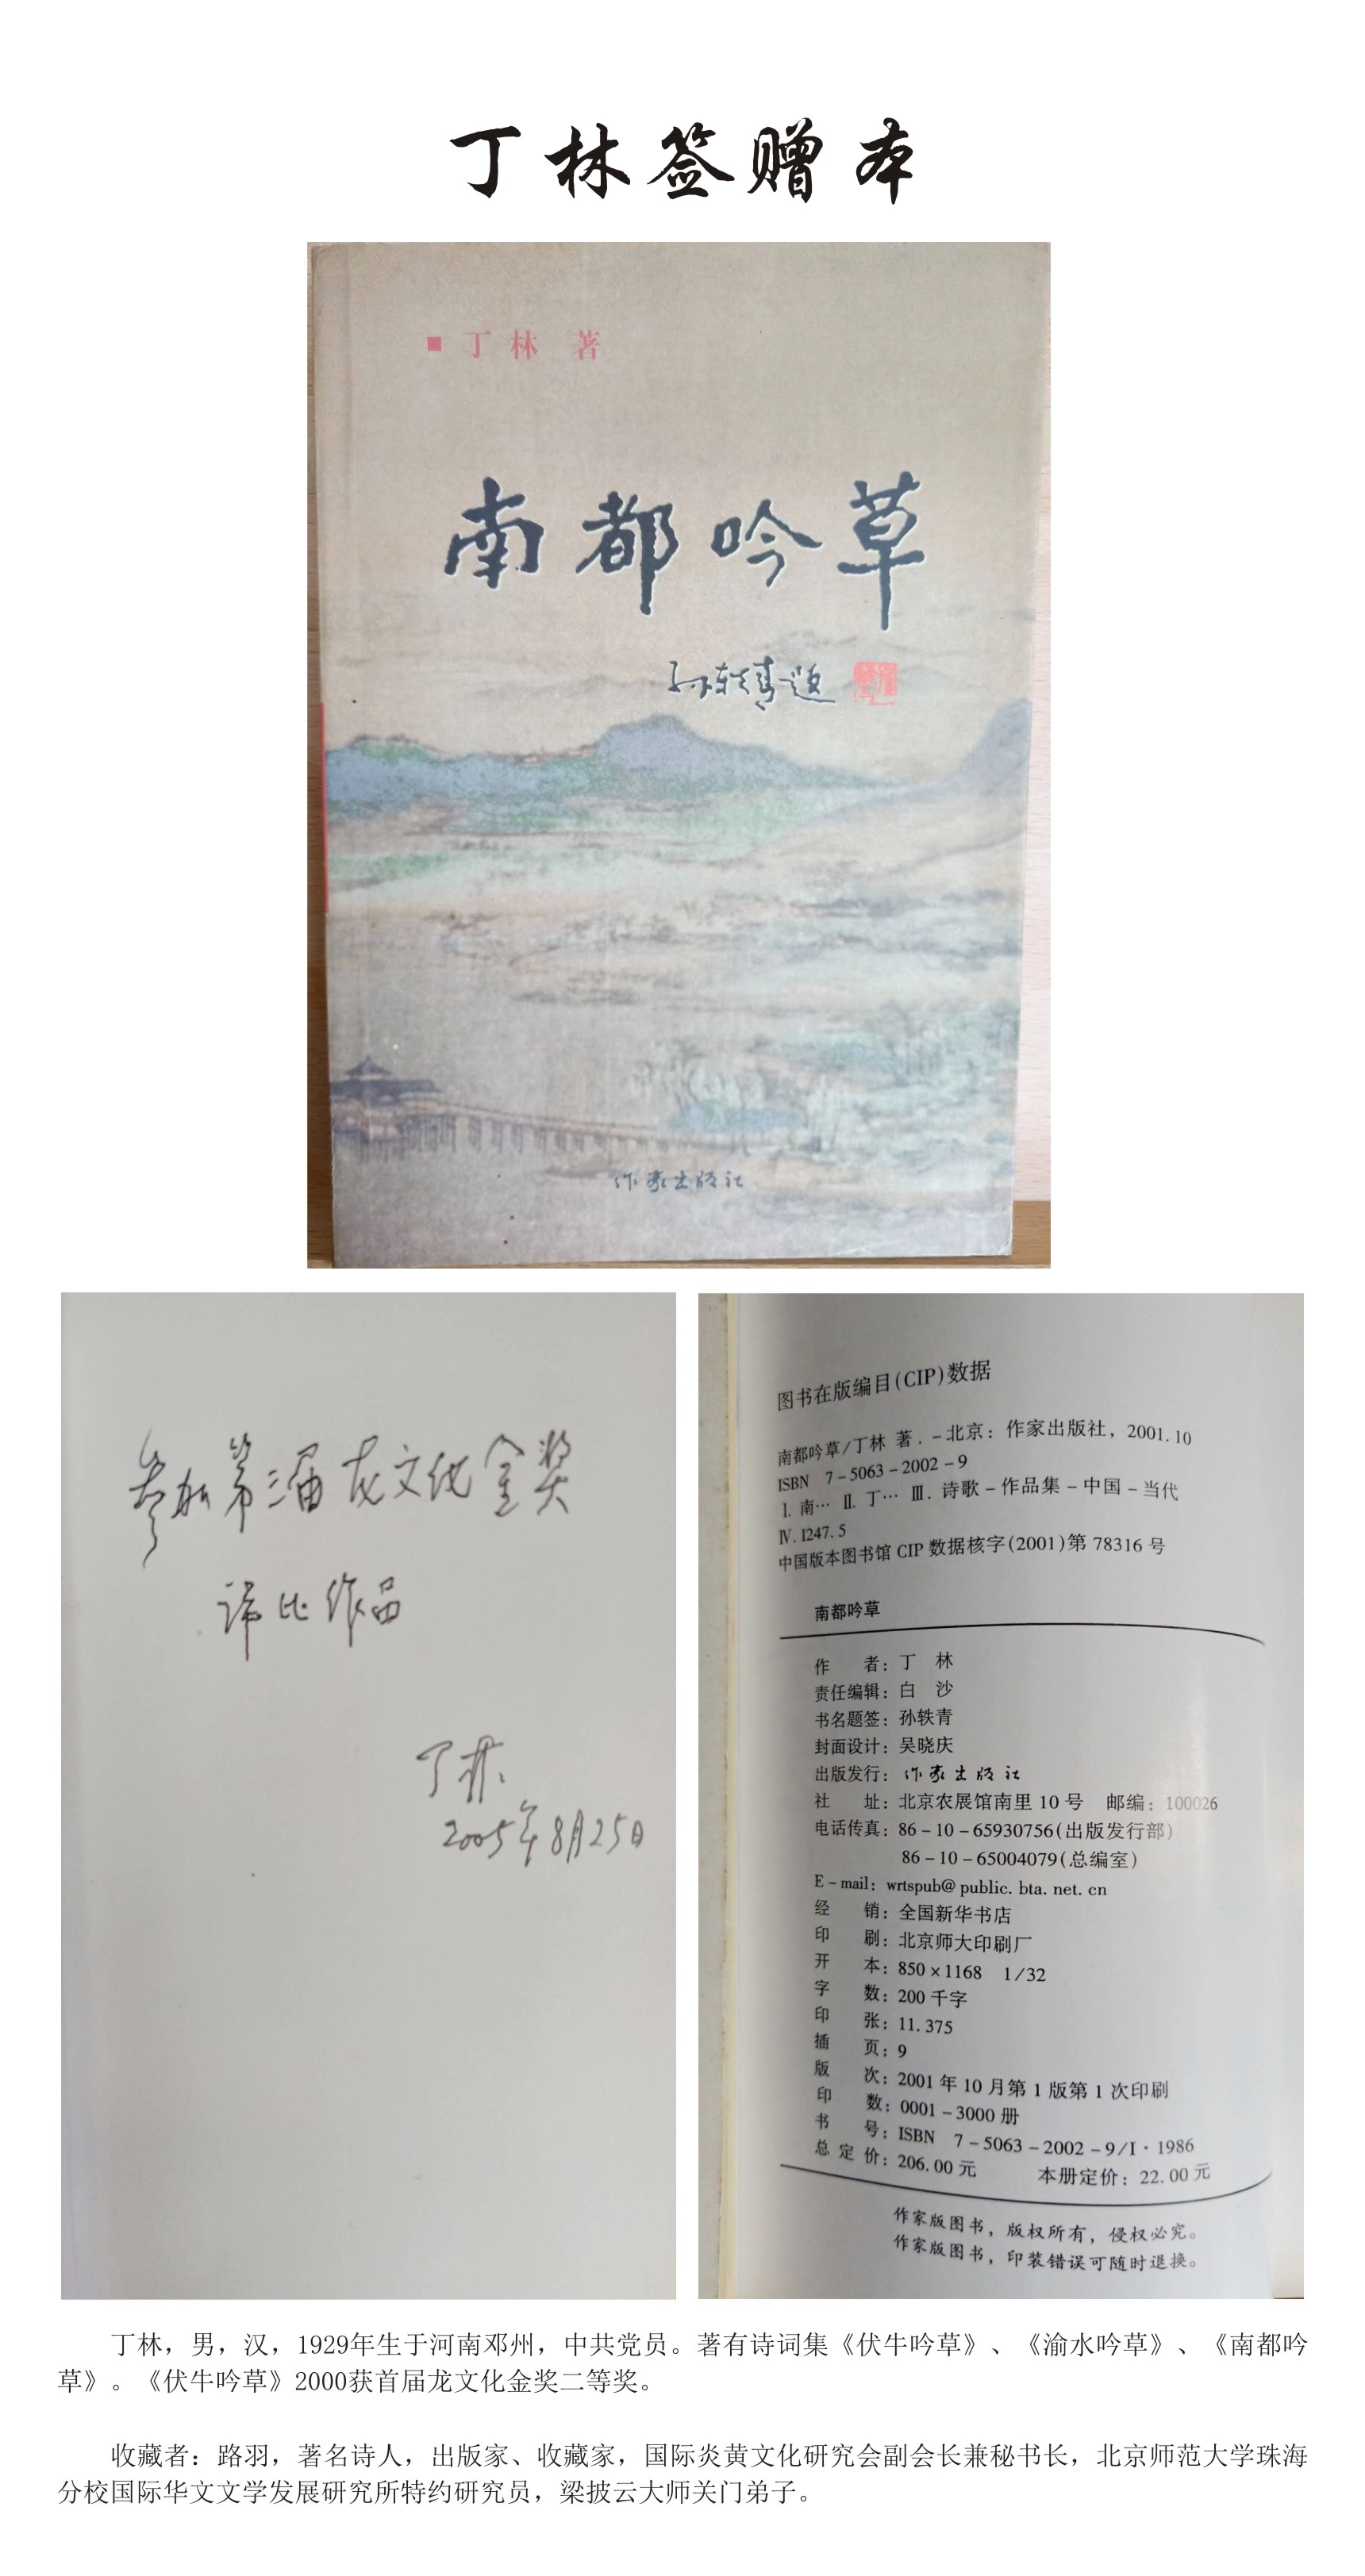 丁林签赠本
■丁林 著
南都吟草
孙轶青题
作家出版社
参加第三届龙文化金奖
评比作品
丁林
2005年8月25日
图书在版编目(CIP)数据
南都吟草/丁林 著.-北京:作家出版社,2001.10
ISBN 7-5063-2002-9
Ⅰ.南… Ⅱ.丁… Ⅲ.诗歌-作品集-中国-当代
Ⅳ.I247.5
中国版本图书馆CIP数据核字(2001)第78316号
南都吟草
作 者:丁 林
责任编辑:白 沙
书名题签:孙轶青
封面设计:吴晓庆
出版发行:作家出版社
社 址:北京农展馆南里10号 邮编:100026
电话传真:86-10-65930756(出版发行部)
86-10-65004079(总编室)
E-mail:wrtspub@public.bta.net.cn
经 销:全国新华书店
印 刷:北京师大印刷厂
开 本:850×1168 1/32
字 数:200千字
印 张:11.375
插 页:9
版 次:2001年10月第1版第1次印刷
印 数:0001-3000册
书 号:ISBN 7-5063-2002-9/I·1986
总 定 价:206.00元 本册定价:22.00元
作家版图书,版权所有,侵权必究。
作家版图书,印装错误可随时退换。
丁林，男，汉，1929年生于河南邓州，中共党员。著有诗词集《伏牛吟草》、《渝水吟草》、《南都吟
草》。《伏牛吟草》2000获首届龙文化金奖二等奖。
收藏者：路羽，著名诗人，出版家、收藏家，国际炎黄文化研究会副会长兼秘书长，北京师范大学珠海
分校国际华文文学发展研究所特约研究员，梁披云大师关门弟子。